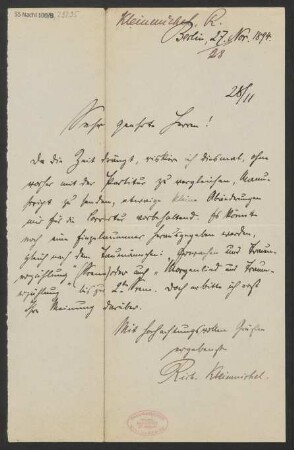 55 Nachl 100/B
Kleinmichel, R.
Berlin, 27. Nov. 1894.
28
28/11
Sehr geehrte Herren!
Da die Zeit drängt, riskire ich diesmal, ohne
vorher mit der Partitur zu vergleichen, Manu-
skript zu senden, etwaige kleine Abänderungen
mir für die Correctur vorbehaltend. Es könnte
noch eine Einzelnummer herausgegeben werden,
gleich nach den und Traum-
erzählung, Morgenlied und Traum-
erzählung bis zur 2ten Scene. Doch erbitte ich erst
Ihre Meinung darüber.
Mit hochachtungsvollen Grüßen
ergebenst
Rich. Kleinmichel.